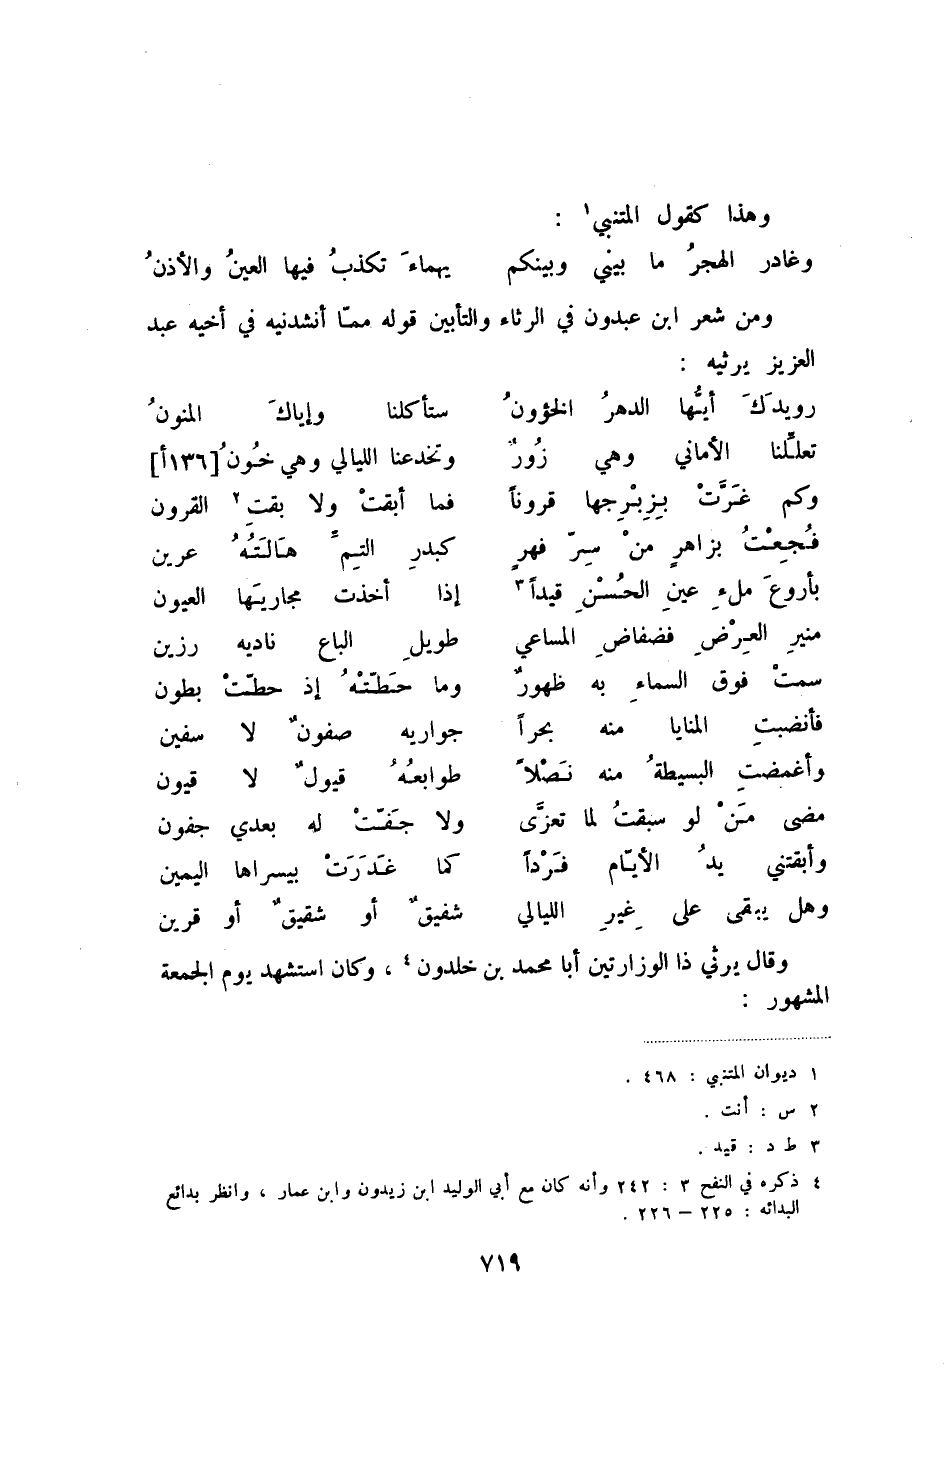 وهذا كقول المتنبي١ :
وغادر الهجرُ ما بيني وبينكم يهماءَ تكذبُ فيها العينُ والأذنُ
ومن شعر ابن عبدون في الرثاء والتأبين قوله ممّا أنشدنيه في أخيه عبد
العزيز يرثيه :
رويدَكَ أيُّها الدهرُ الخؤونُ ستأكلنا وإياكَ المنونُ
تعلِّلنا الأماني وهي زُورٌ وتخدعنا الليالي وهي خُونُ [١٣٦أ]
وكم غَرَّتْ بِزِبْرِجها قروناً فما أبقتْ ولا بقتِ٢ القرون
فُجِعْتُ بزاهرٍ منْ سِرّ فهرٍ كبدرِ التِمِّ هَالَتُهُ عرين
بأروعَ ملءِ عينِ الحُسْنِ قيداً٣ إذا أخذت مجاريَها العيون
منيرِ العِرْضِ فضفاضِ المساعي طويلِ الباع ناديه رزين
سمتْ فوق السماءِ به ظهورٌ وما حَطَّتْهُ إذ حطّتْ بطون
فأنضبتِ المنايا منه بحراً جواريه صفونٌ لا سفين
وأغمضتِ البسيطةُ منه نَصْلاً طوابعُهُ قيولٌ لا قيون
مضى مَنْ لو سبقتُ لما تعزَّى ولا جَفّتْ له بعدي جفون
وأبقتني يدُ الأيّام فَرْداً كما غَدَرَتْ بيسراها اليمين
وهل يبقى على غِيرِ الليالي شفيقٌ أو شقيقٌ أو قرين
وقال يرثي ذا الوزارتين أبا محمد بن خلدون٤ ، وكان استشهد يوم الجمعة
المشهور :
١ ديوان المتنبي : ٤٦٨ .
٢ س : أنت .
٣ ط د : قيد .
٤ ذكره في النفح ٣ : ٢٤٢ وأنه كان مع أبي الوليد ابن زيدون وابن عمار ، وانظر بدائع
البدائه : ٢٢٥ – ٢٢٦ .
٧١٩